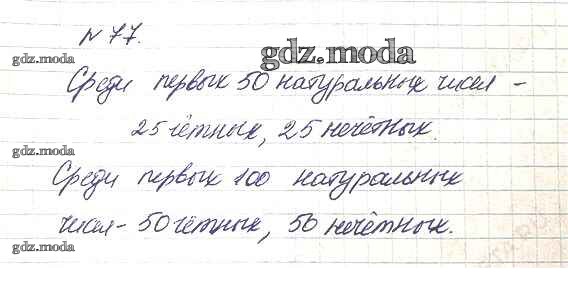 N 77.
gdz.moda
Среди первых 50 натуральных чисел -
25 чётных, 25 нечётных.
gdz.moda
Среди первых 100 натуральных
чисел - 50 чётных, 50 нечётных.
gdz.moda